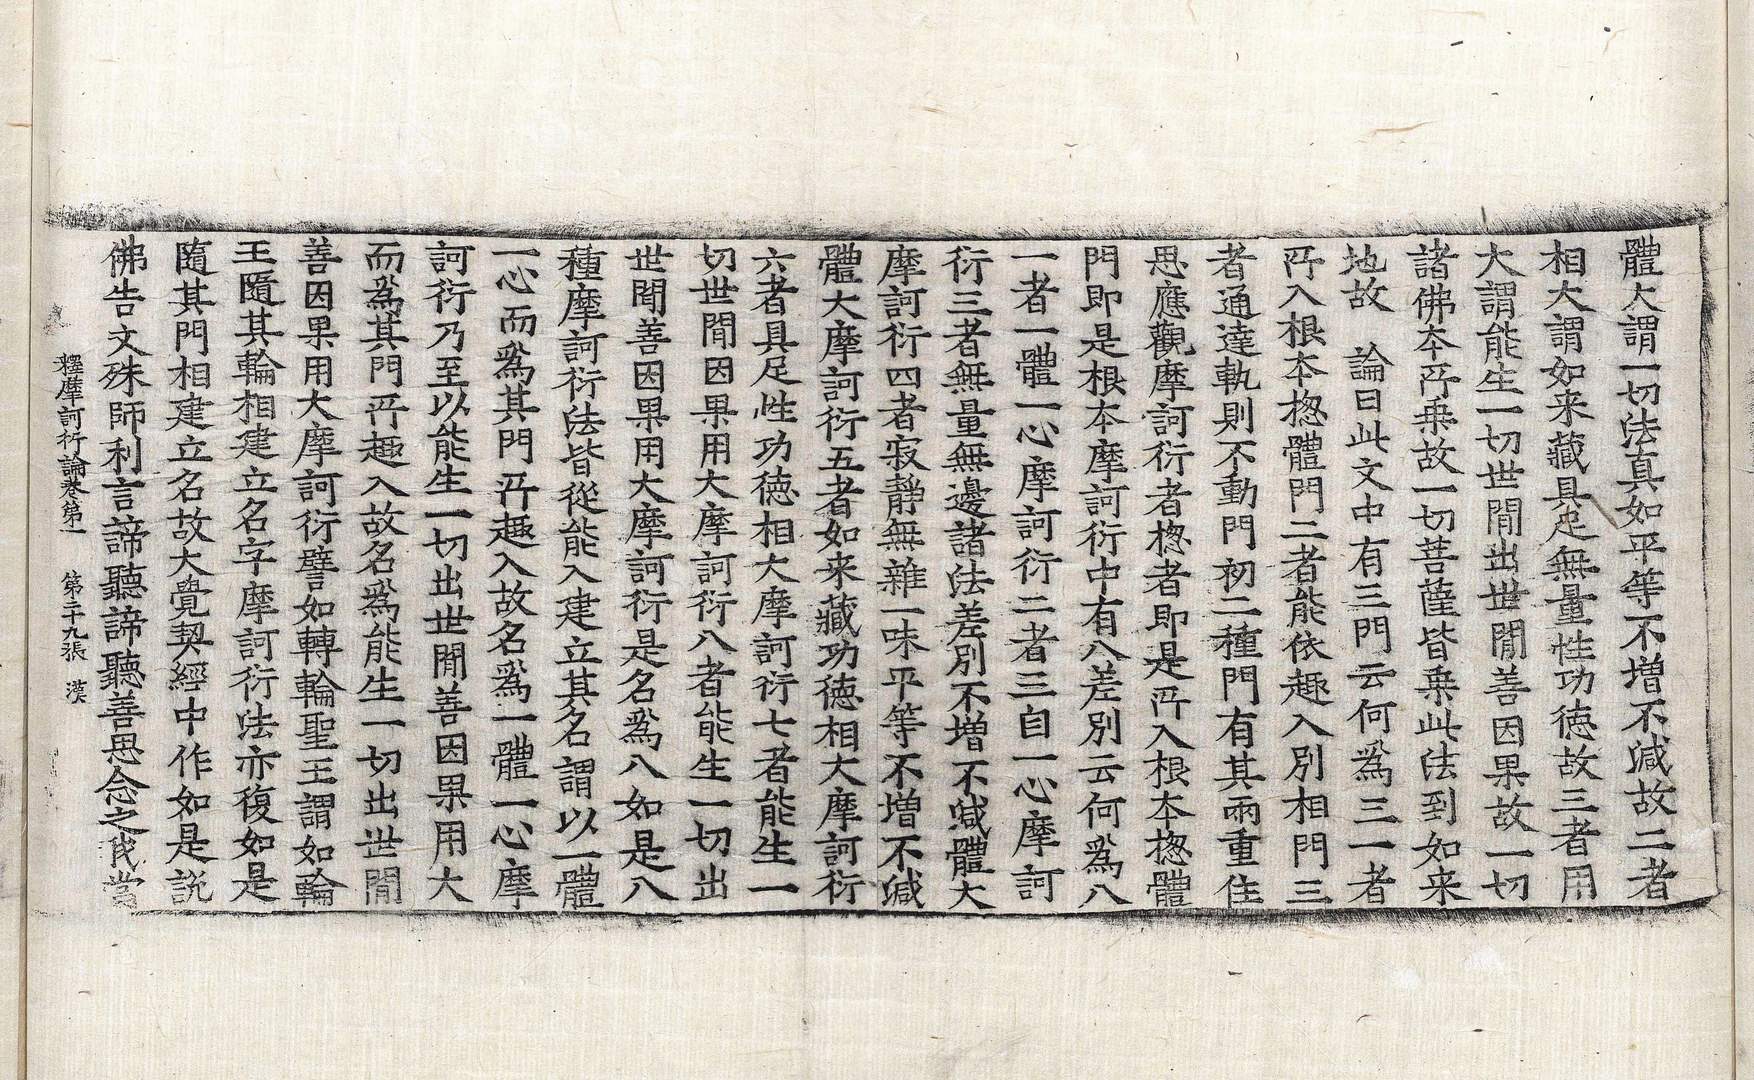 體大謂一切法真如平等不增不減故二者
相大謂如来藏具足無量性功德故三者用
大謂能生一切世閒出世閒善因果故一切
諸佛本所乗故一切菩薩皆乗此法到如来
地故　論曰此文中有三門云何為三一者
所入根本揔體門二者能依趣入別相門三
者通達軌則不動門初二種門有其兩重住
思應觀摩訶衍者揔者即是所入根本揔體
門即是根本摩訶衍中有八差別云何為八
一者一體一心摩訶衍二者三自一心摩訶
衍三者無量無邊諸法差別不增不減體大
摩訶衍四者寂靜無雜一味平等不增不減
體大摩訶衍五者如来藏功德相大摩訶衍
六者具足性功德相大摩訶衍七者能生一
切世閒因果用大摩訶衍八者能生一切出
世閒善因果用大摩訶衍是名為八如是八
種摩訶衍法皆從能入建立其名謂以一體
一心而為其門所趣入故名為一體一心摩
訶衍乃至以能生一切出世閒善因果用大
而為其門所趣入故名為能生一切出世閒
善因果用大摩訶衍譬如轉輪聖王謂如輪
王隨其輪相建立名字摩訶衍法亦復如是
隨其門相建立名故大覺契經中作如是說
佛告文殊師利言諦聽諦聽善思念之我當
釋摩訶衍論卷第一　第二十九張　漢